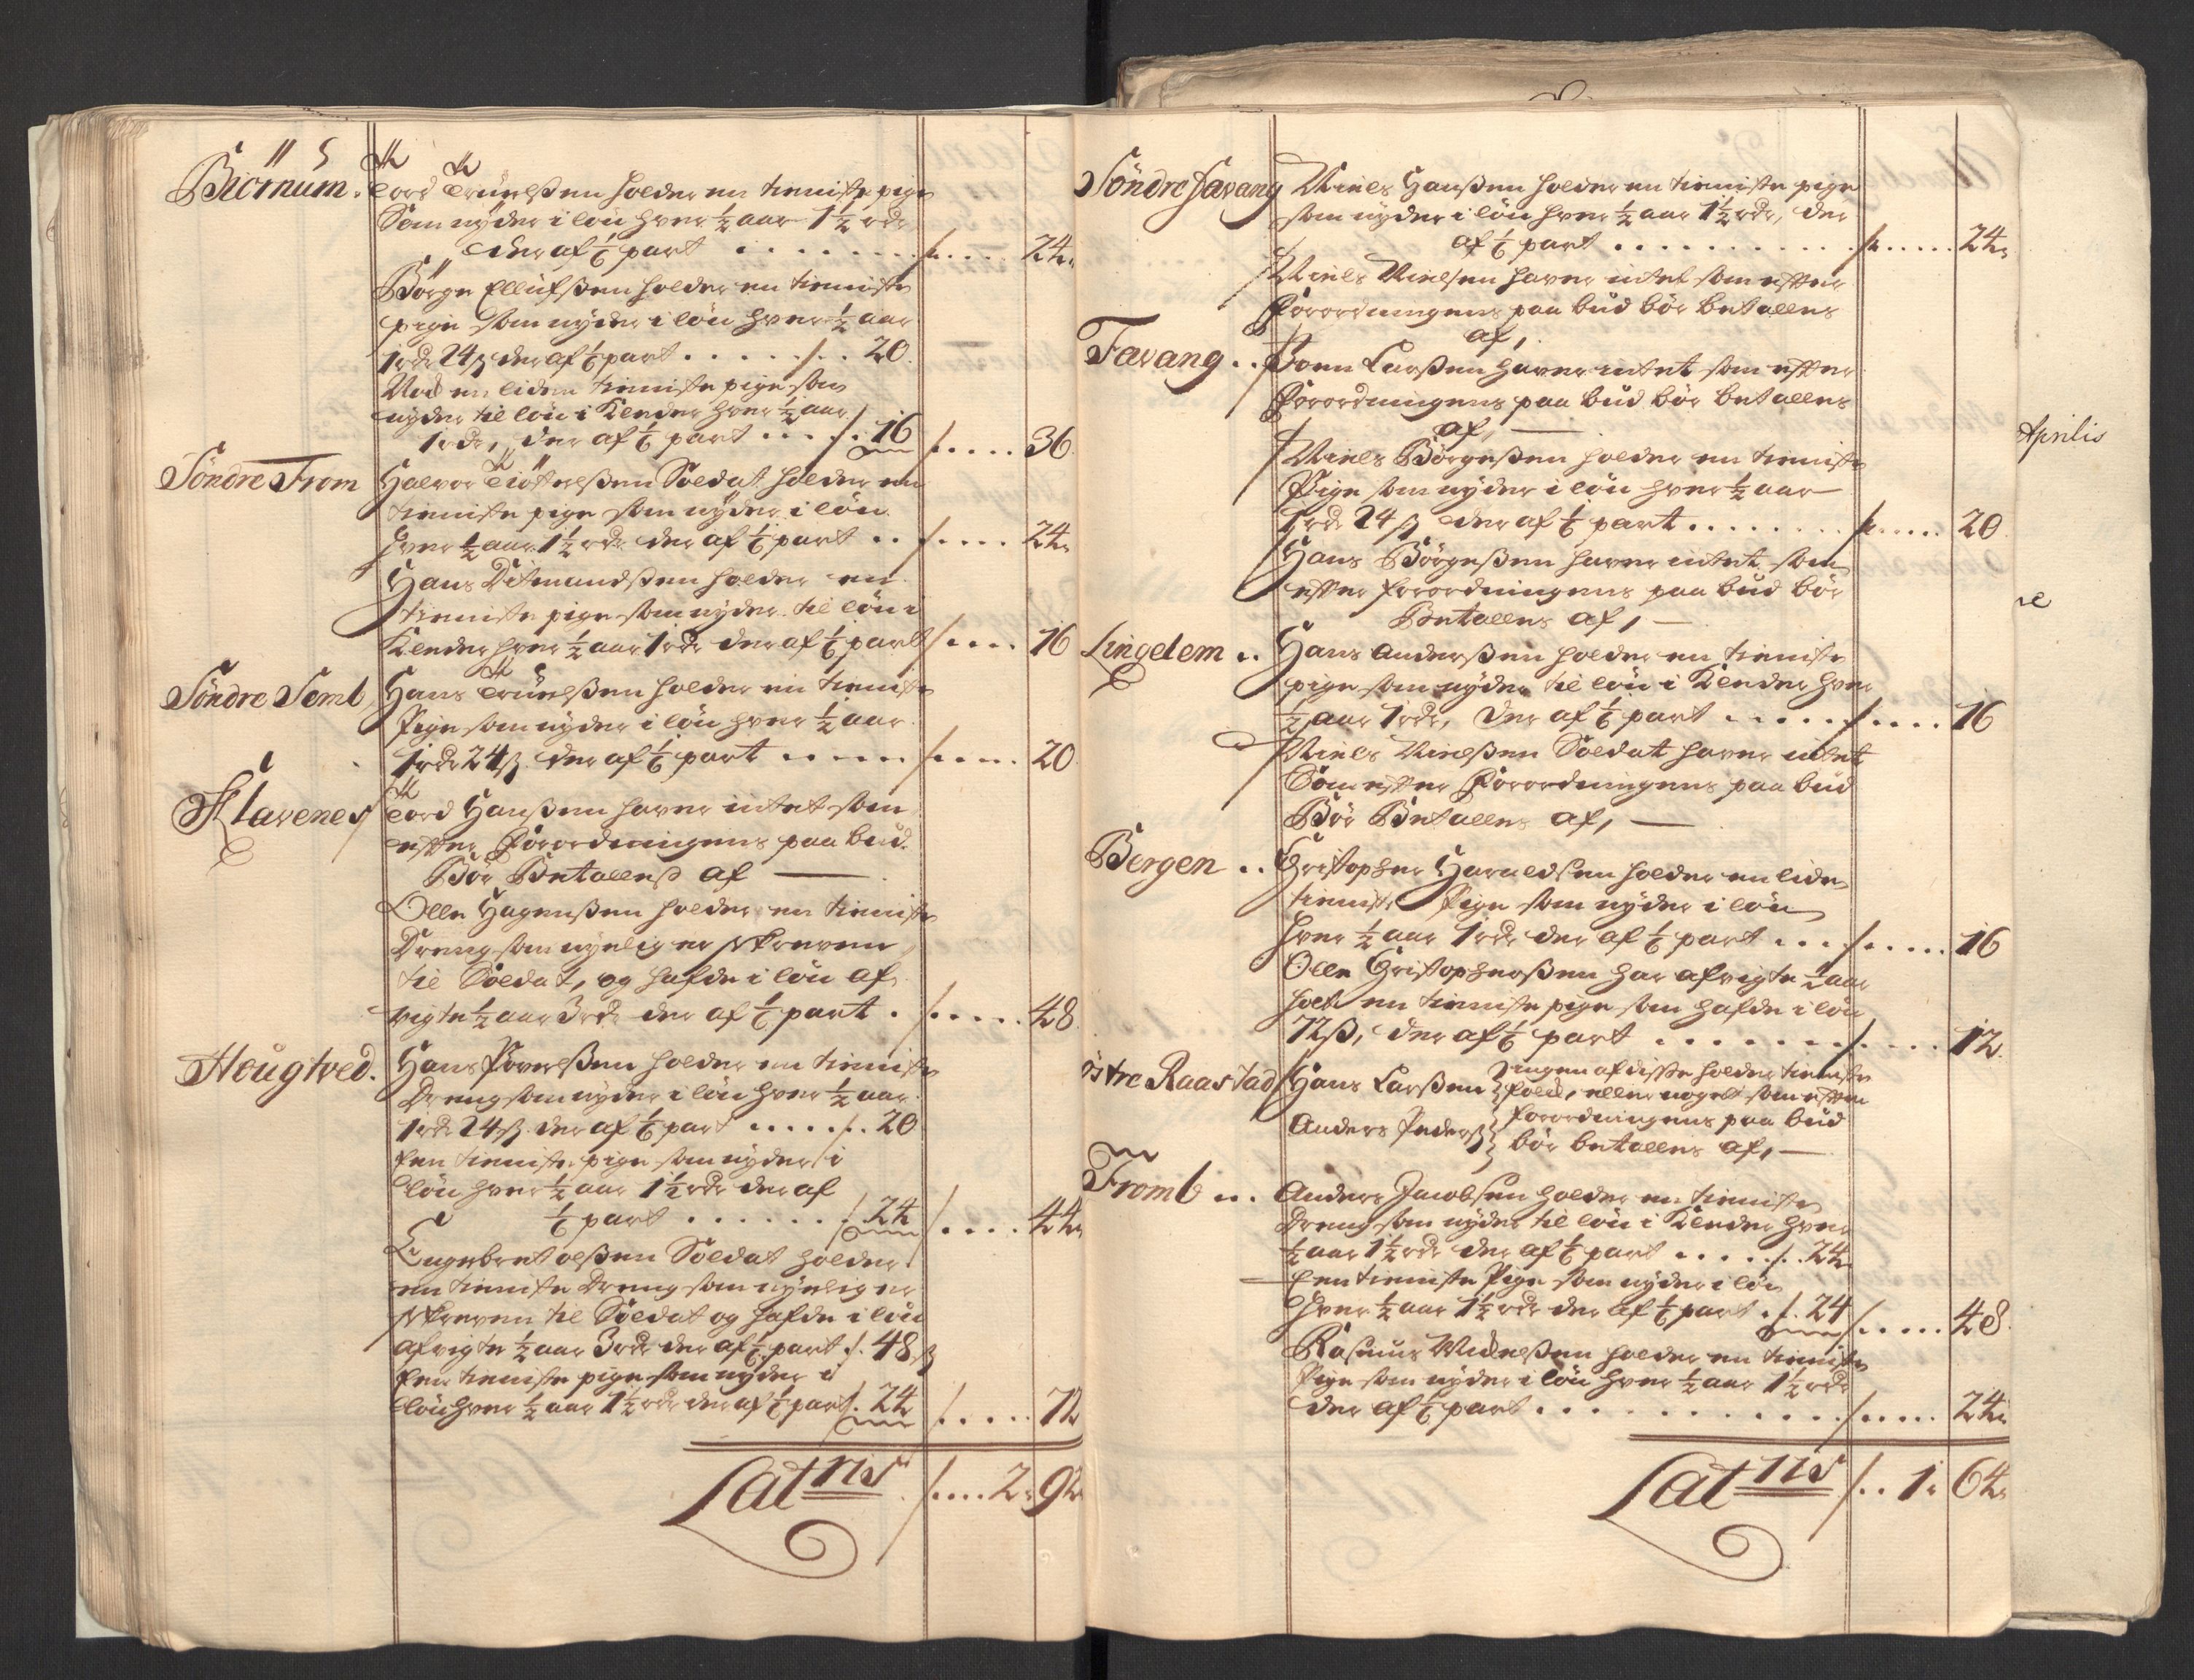 Biörnum. Tord Truelßen holder en tieniste pige
Som nyder i lön hver ½ aar 1½ rdr
der af ⅙ part . . . . . . . /: . . . . 24
Börge Ellufßen holder en tieniste
pige som nyder i lön hver ½ aar
1 rdr 24 ß der af ⅙ part . . . . . /. . 20
Nock en liden tieniste pige som
nyder til lön i Klender hver ½ aar
1 rdr, der af ⅙ part . . . . /. . 16 /. . . . . 36
Söndre From Halvor Tiöstelßen Soldat holder en
tieniste pige som nyder i lön
hver ½ aar 1½ rdr der af ⅙ part . . /. . . . . 24
Hans Ditmandßen holder en
tieniste pige som nyder til lön i
Klender hver ½ aar 1 rdr der af ⅙ part /. . . . 16
Söndre Semb Hans Truelßen holder en tieniste
Pige som nyder i lön hver ½ aar
1 rdr 24 ß. der af ⅙ part . . . . . /. . . . . 20
Klavenes Tord Hanßen haver intet som
effter Forordningens paa bud
Bör Betalles af —
Olle Hagenßen holder en tieniste
Dreng som nyelig er skreven
til Soldat, og hafde i lön af
vigte ½ aar 3 rdr der af ⅙ part . /. . . . . 48
Heugtved. Hans Povelßen holder en tieniste
Dreng som nyder i lön hver ½ aar
1 rdr 24 ß. der af ⅙ part . . . . . /. . 20
Een tieniste pige som nyder i
lön hver ½ aar 1½ rdr der af
⅙ part . . . . . . . / 24 /. . . . 44
Engebret olßen Soldat holder
en tieniste Dreng som nyelig er
skreven til Soldat og hafde i lön
afvigte ½ aar 3 rdr der af ⅙ part /. 48 ß
Een tieniste pige som nyder i
lön hver ½ aar 1½ rdr der af ⅙ part /. 24 /. . . . . 72
Lat ris /. . . . 2. 92
Söndre Favang Niels Hanßen holder en tieniste pige
som nyder i lön hver ½ aar 1½ rdr, der
af ⅙ part . . . . . . . . . . . /: . . . . . 24
Niels Nielsen haver intet som effter
Forordningens paa bud bör betalles
af,
Favang . . Soen Larßen haver intet som effter
Forordningens paa bud bör betalles
af, —
Niels Börgeßen holder en tieniste
Pige som nyder i lön hver ½ aar
1 rdr 24 ß der af ⅙ part . . . . . . . . /: . . . . . 20
Hans Börgeßen haver intet som
effter forordningens paa bud bör
Betalles af, —
Lingelem . . Hans Anderßen holder en tieniste
pige som nyder til lön i Klender hver
½ aar 1 rdr, der af ⅙ part . . . . . /. . . . . 16
Niels Nielßen Soldat haver intet
Som effter Forordningens paa bud
Bör Betalles af, —
Bergen . . Christopher Haraldsen holder en liden
tieniste Pige som nyder i lön
hver ½ aar 1 rdr der af ⅙ part . . . /. . . . . 16
Olle Christopherßen har afvigte ½ aar
holt en tieniste pige som hafde i lön
72 ß, der af ⅙ part . . . . . . . . /. . . . . 12
östre Raastad Hans Larßen } ingen af disse holder tieniste
folck, eller noget som effter
Anders Peders } forordningens paa bud
bör betalles af, —
Fromb . . . Anders Jacobsen holder en tieniste
Dreng som nyder til lön i Klender hver
½ aar 1½ rdr der af ⅙ part . . . . . /. 24
Een tieniste Pige som nyder i lön
hver ½ aar 1½ rdr der af ⅙ part . /. 24 /. . . . . 48
Rasmus holder en tieniste
Pige som nyder i lön hver ½ aar 1½ rdr
der af ⅙ part . . . . . . . . . . . . . /. . . . . 24
Lat ris /. . 1. 64
Aprilis